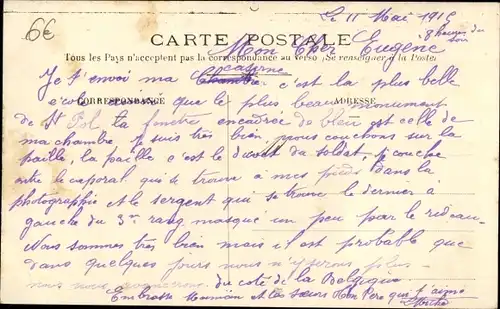 6€
Le 11 Mai 1915
8 heures du soir
CARTE POSTALE
Mon Cher Eugène
Tous les Pays n'acceptent pas la correspondance au verso (Se renseigner à la Poste)
caserne
Je t'envoi ma Chambre c'est la plus belle
CORRESPONDANCE
ADRESSE
que le plus beau monument
de St Pol la fenêtre encadrée de bleu est celle de
ma chambre je suis très bien nous couchons sur la
paille, la paille c'est le duvet du soldat, je couche
entre le caporal qui se trouve à mes pieds dans la
photographie et le sergent qui se trouve le dernier à
gauche du 3me rang masqué un peu par le rideau
Nous sommes très bien mais il est probable que
dans quelques jours nous n'y serons plus
nous nous du coté de la Belgique
Embrasse Maman et les soeurs Ton Père qui t'aime